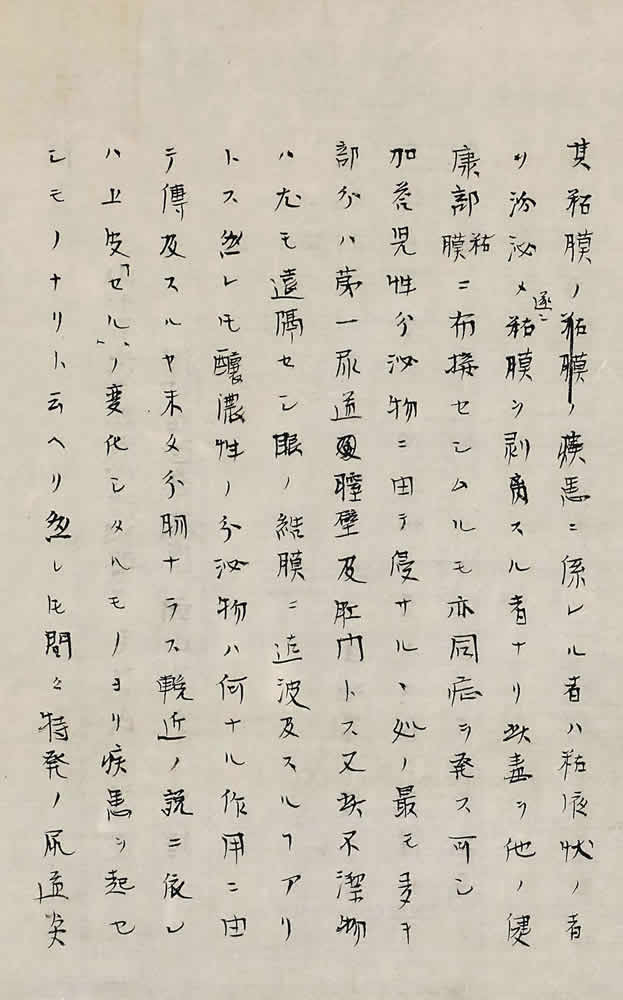 其粘膜ノ粘膜ノ疾患ニ係レル者ハ粘液状ノ者
ヲ汾泌メ遂ニ粘膜ヲ剥离スル者ナリ此毒ヲ他ノ健
康部粘膜ニ布接セシムルモ亦同症ヲ発ス可シ
加答児性分泌物ニ由テ侵サルヽ処ノ最モ多キ
部分ハ第一尿道膣壁及肛門トス又此不潔物
ハ尤モ遠隔セシ眼ノ結膜ニ迄波及スルヿアリ
トス然レ𪜈釀濃性ノ分泌物ハ何ナル作用ニ由
テ傳及スルヤ未タ分明ナラス輓近ノ説ニ依レ
ハ上皮「セル」ノ変化シタルモノヨリ疾患ヲ起セ
シモノナリト云ヘリ然レ𪜈間々特発ノ尿道炎